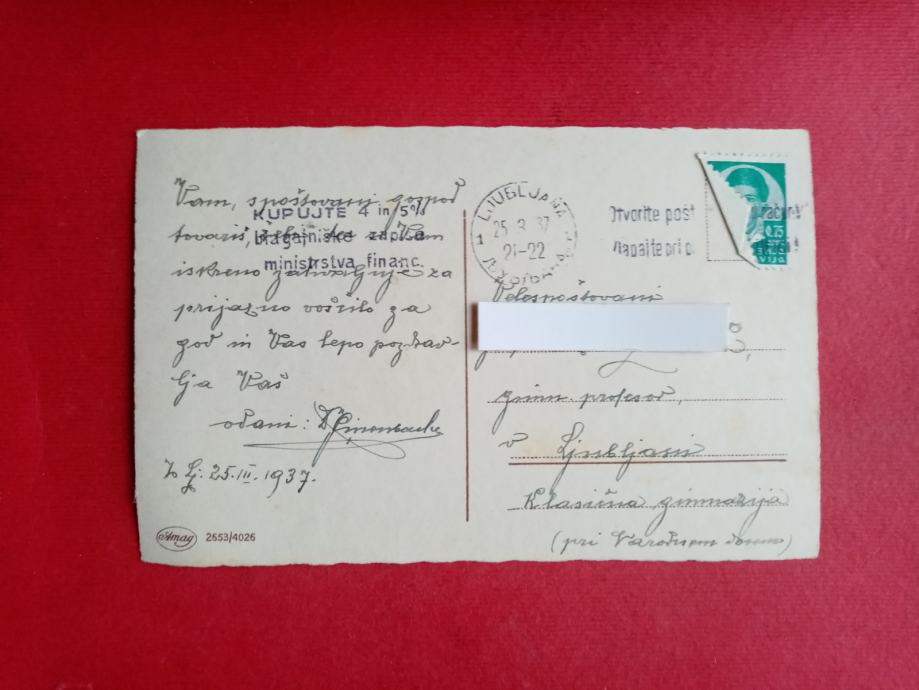 Vam, spoštovani gospod
tovariš,
iskreno zahvaljuje za
prijazno voščilo za
god in Vas lepo pozdrav-
lja Vaš
odani:
25. III. 1937.
Amag 2653/4026
KUPUJTE 4 in 5%
blagajniške zapise
ministrstva financ.
LJUBLJANA
1
25. 3. 37
21-22
Otvorite pošt
račun!
0.75
VIJA
Velespoštovani
gimn. profesor,
v Ljubljani
Klasična gimnazija
(pri Narodnem domu)